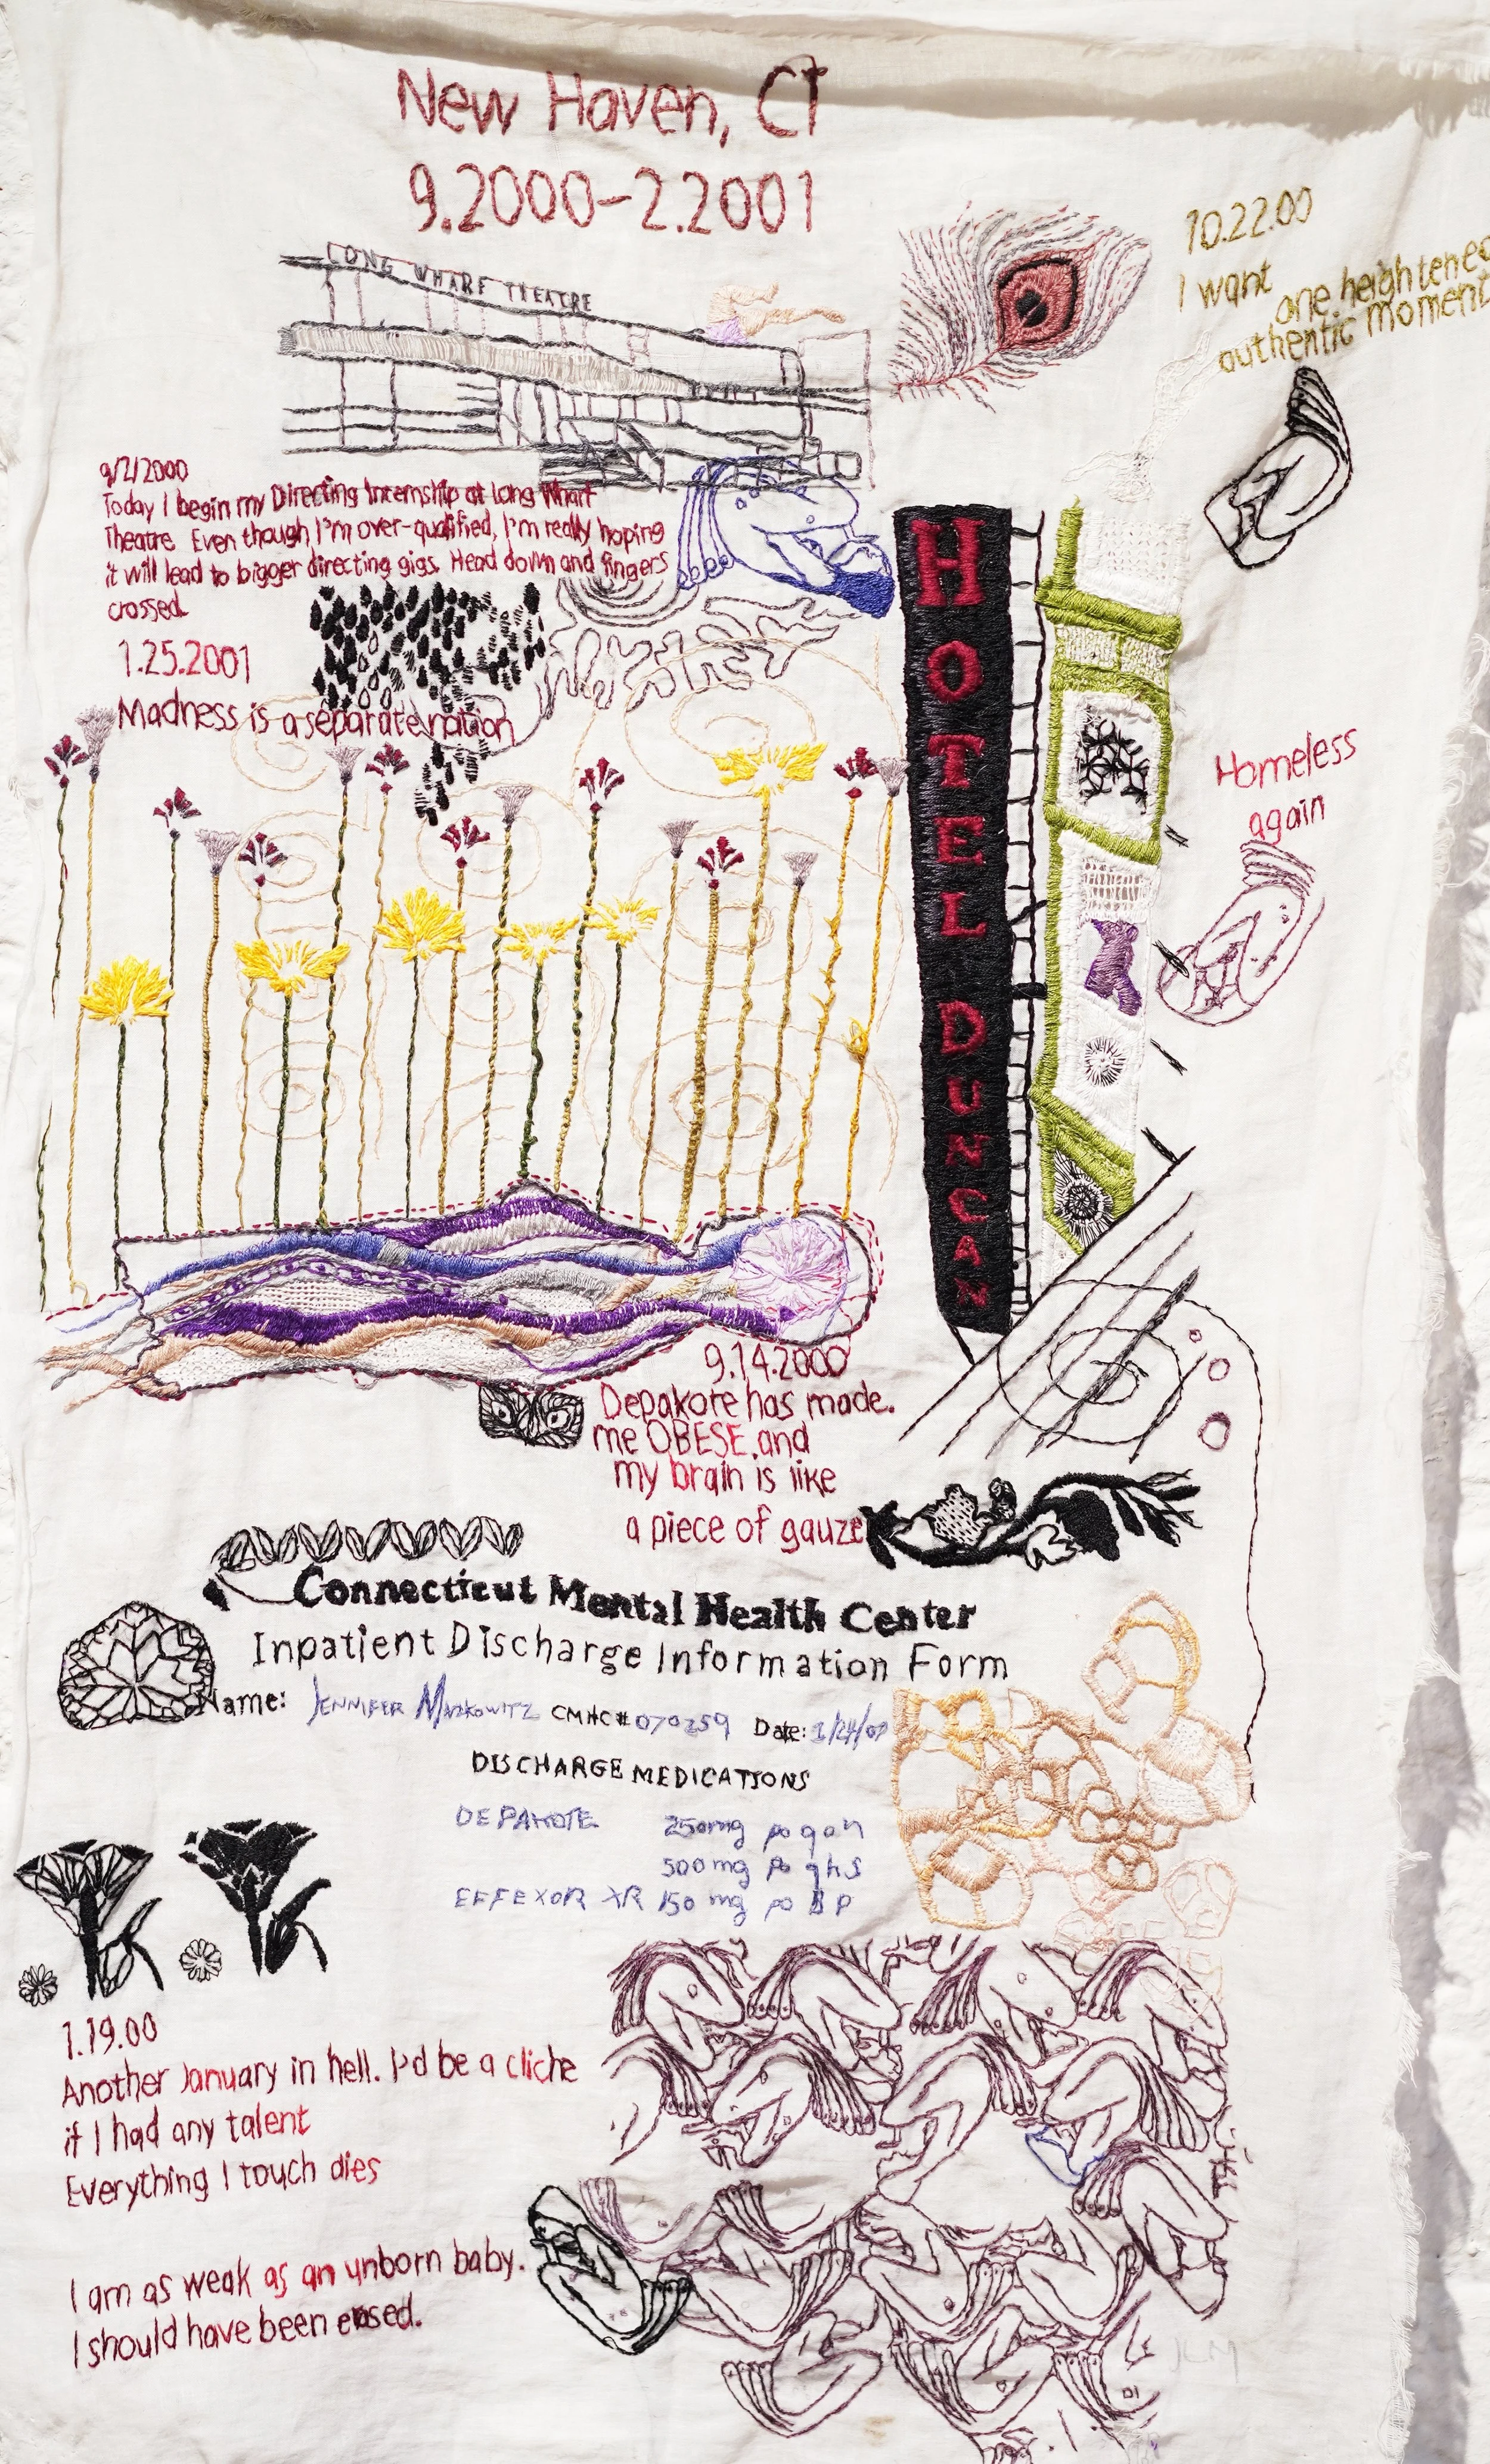 New Haven, CT
9.2000-2.2001
LONG WHARF THEATRE
10.22.00
I want
one heightened
authentic moment
9/7/2000
Today I begin my Directing Internship at Long Wharf
Theatre. Even though I'm over-qualified, I'm really hoping
it will lead to bigger directing gigs. Head down and fingers
crossed.
1.25.2001
Madness is a separate nation
HOTEL DUNCAN
Homeless
again
9.14.2000
Depakote has made.
me OBESE.and
my brain is like
a piece of gauze
Connecticut Mental Health Center
Inpatient Discharge Information Form
Name: JENNIFER MARKOWITZ CMHC# 070259 Date:
DISCHARGE MEDICATIONS
DEPAKOTE 250mg po qam
500mg po qhs
EFFEXOR XR 150 mg po
1.19.00
Another January in hell. I'd be a cliche
if I had any talent
Everything I touch dies
I am as weak as an unborn baby.
I should have been erased.
JCM